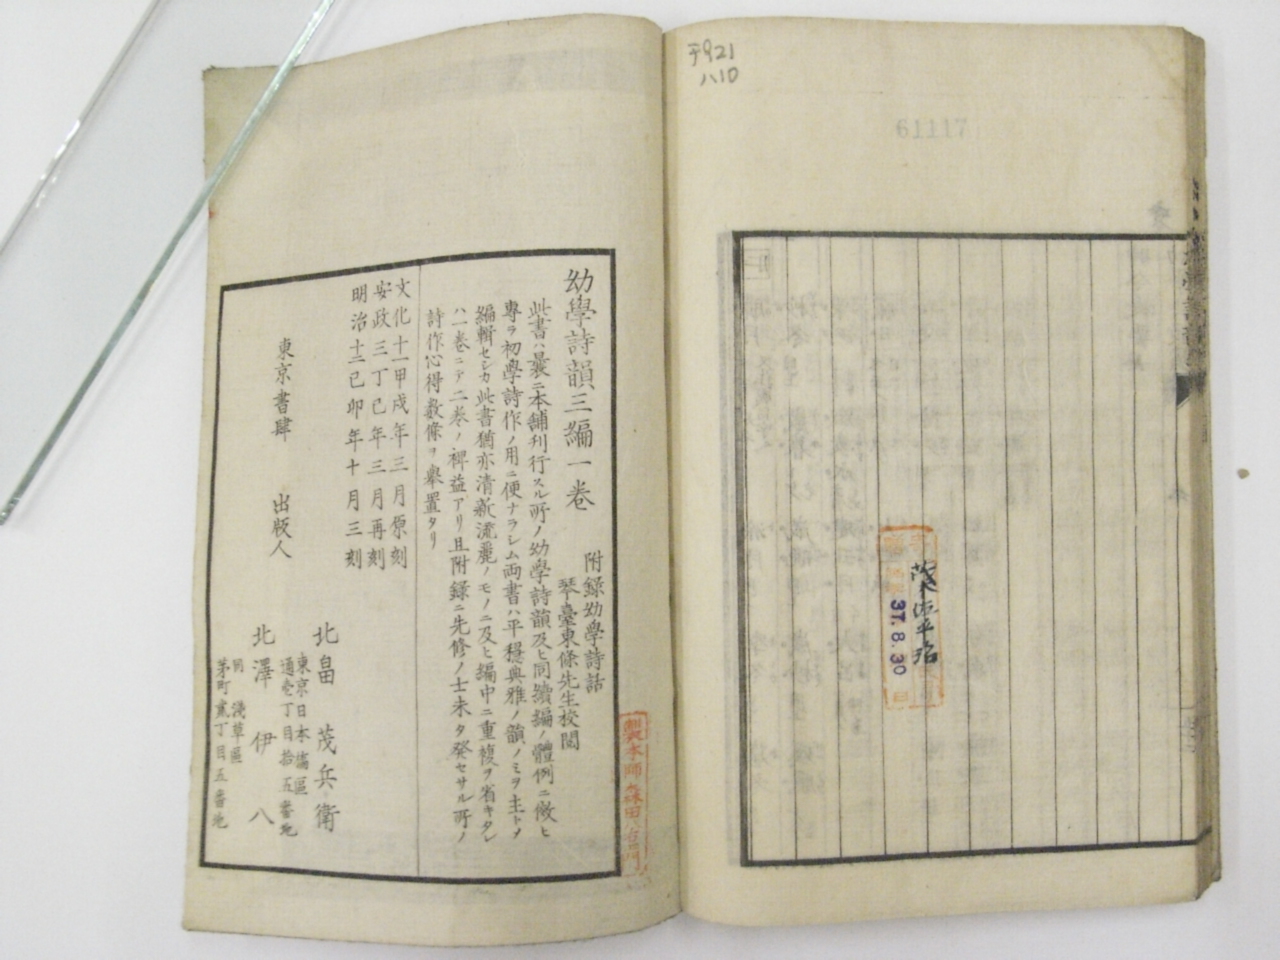 ヲ921
ハ10
61117
37.8.30
幼學詩韻三編一卷
附録幼學詩話
琴臺東條先生校閲
此書ハ曩ニ本舗刊行スル所ノ幼學詩韻及ヒ同續編ノ體例ニ倣ヒ
專ラ初學詩作ノ用ニ便ナラシム両書ハ平穏典雅ノ韻ノミヲ主トメ
編輯セシカ此書猶亦清新流麗ノモノニ及ヒ編中ニ重複ヲ省キタレ
ハ一卷ニテ二卷ノ裨益アリ且附録ニ先修ノ士未タ發セサル所ノ
詩作心得數條ヲ舉置タリ
文化十一甲戌年三月原刻
安政三丁巳年三月再刻
明治十二己卯年十月三刻
東京書肆 出版人
北畠茂兵衛
東京日本橋區
通壱丁目拾五番地
北澤伊八
同淺草區
茅町貳丁目五番地